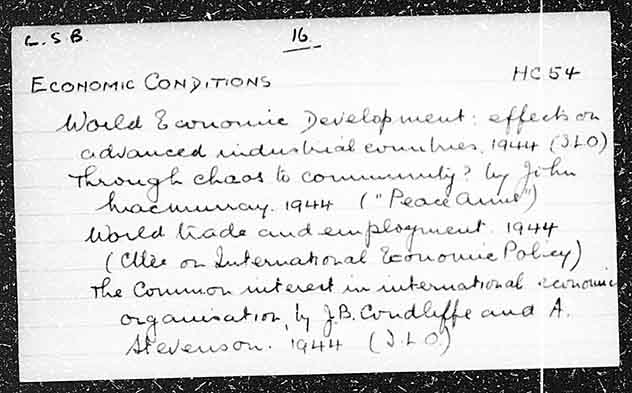 L.S.B. 16
ECONOMIC CONDITIONS HC54
World Economic Development: effects on
advanced industrial countries. 1944 (I.L.O)
Through chaos to community? by John
Macmurray. 1944 ("Peace Aims")
World trade and employment. 1944
(Cttee on International Economic Policy)
The Common interest in international economic
organisation, by J.B. Condliffe and A.
Stevenson. 1944 (I.L.O.)